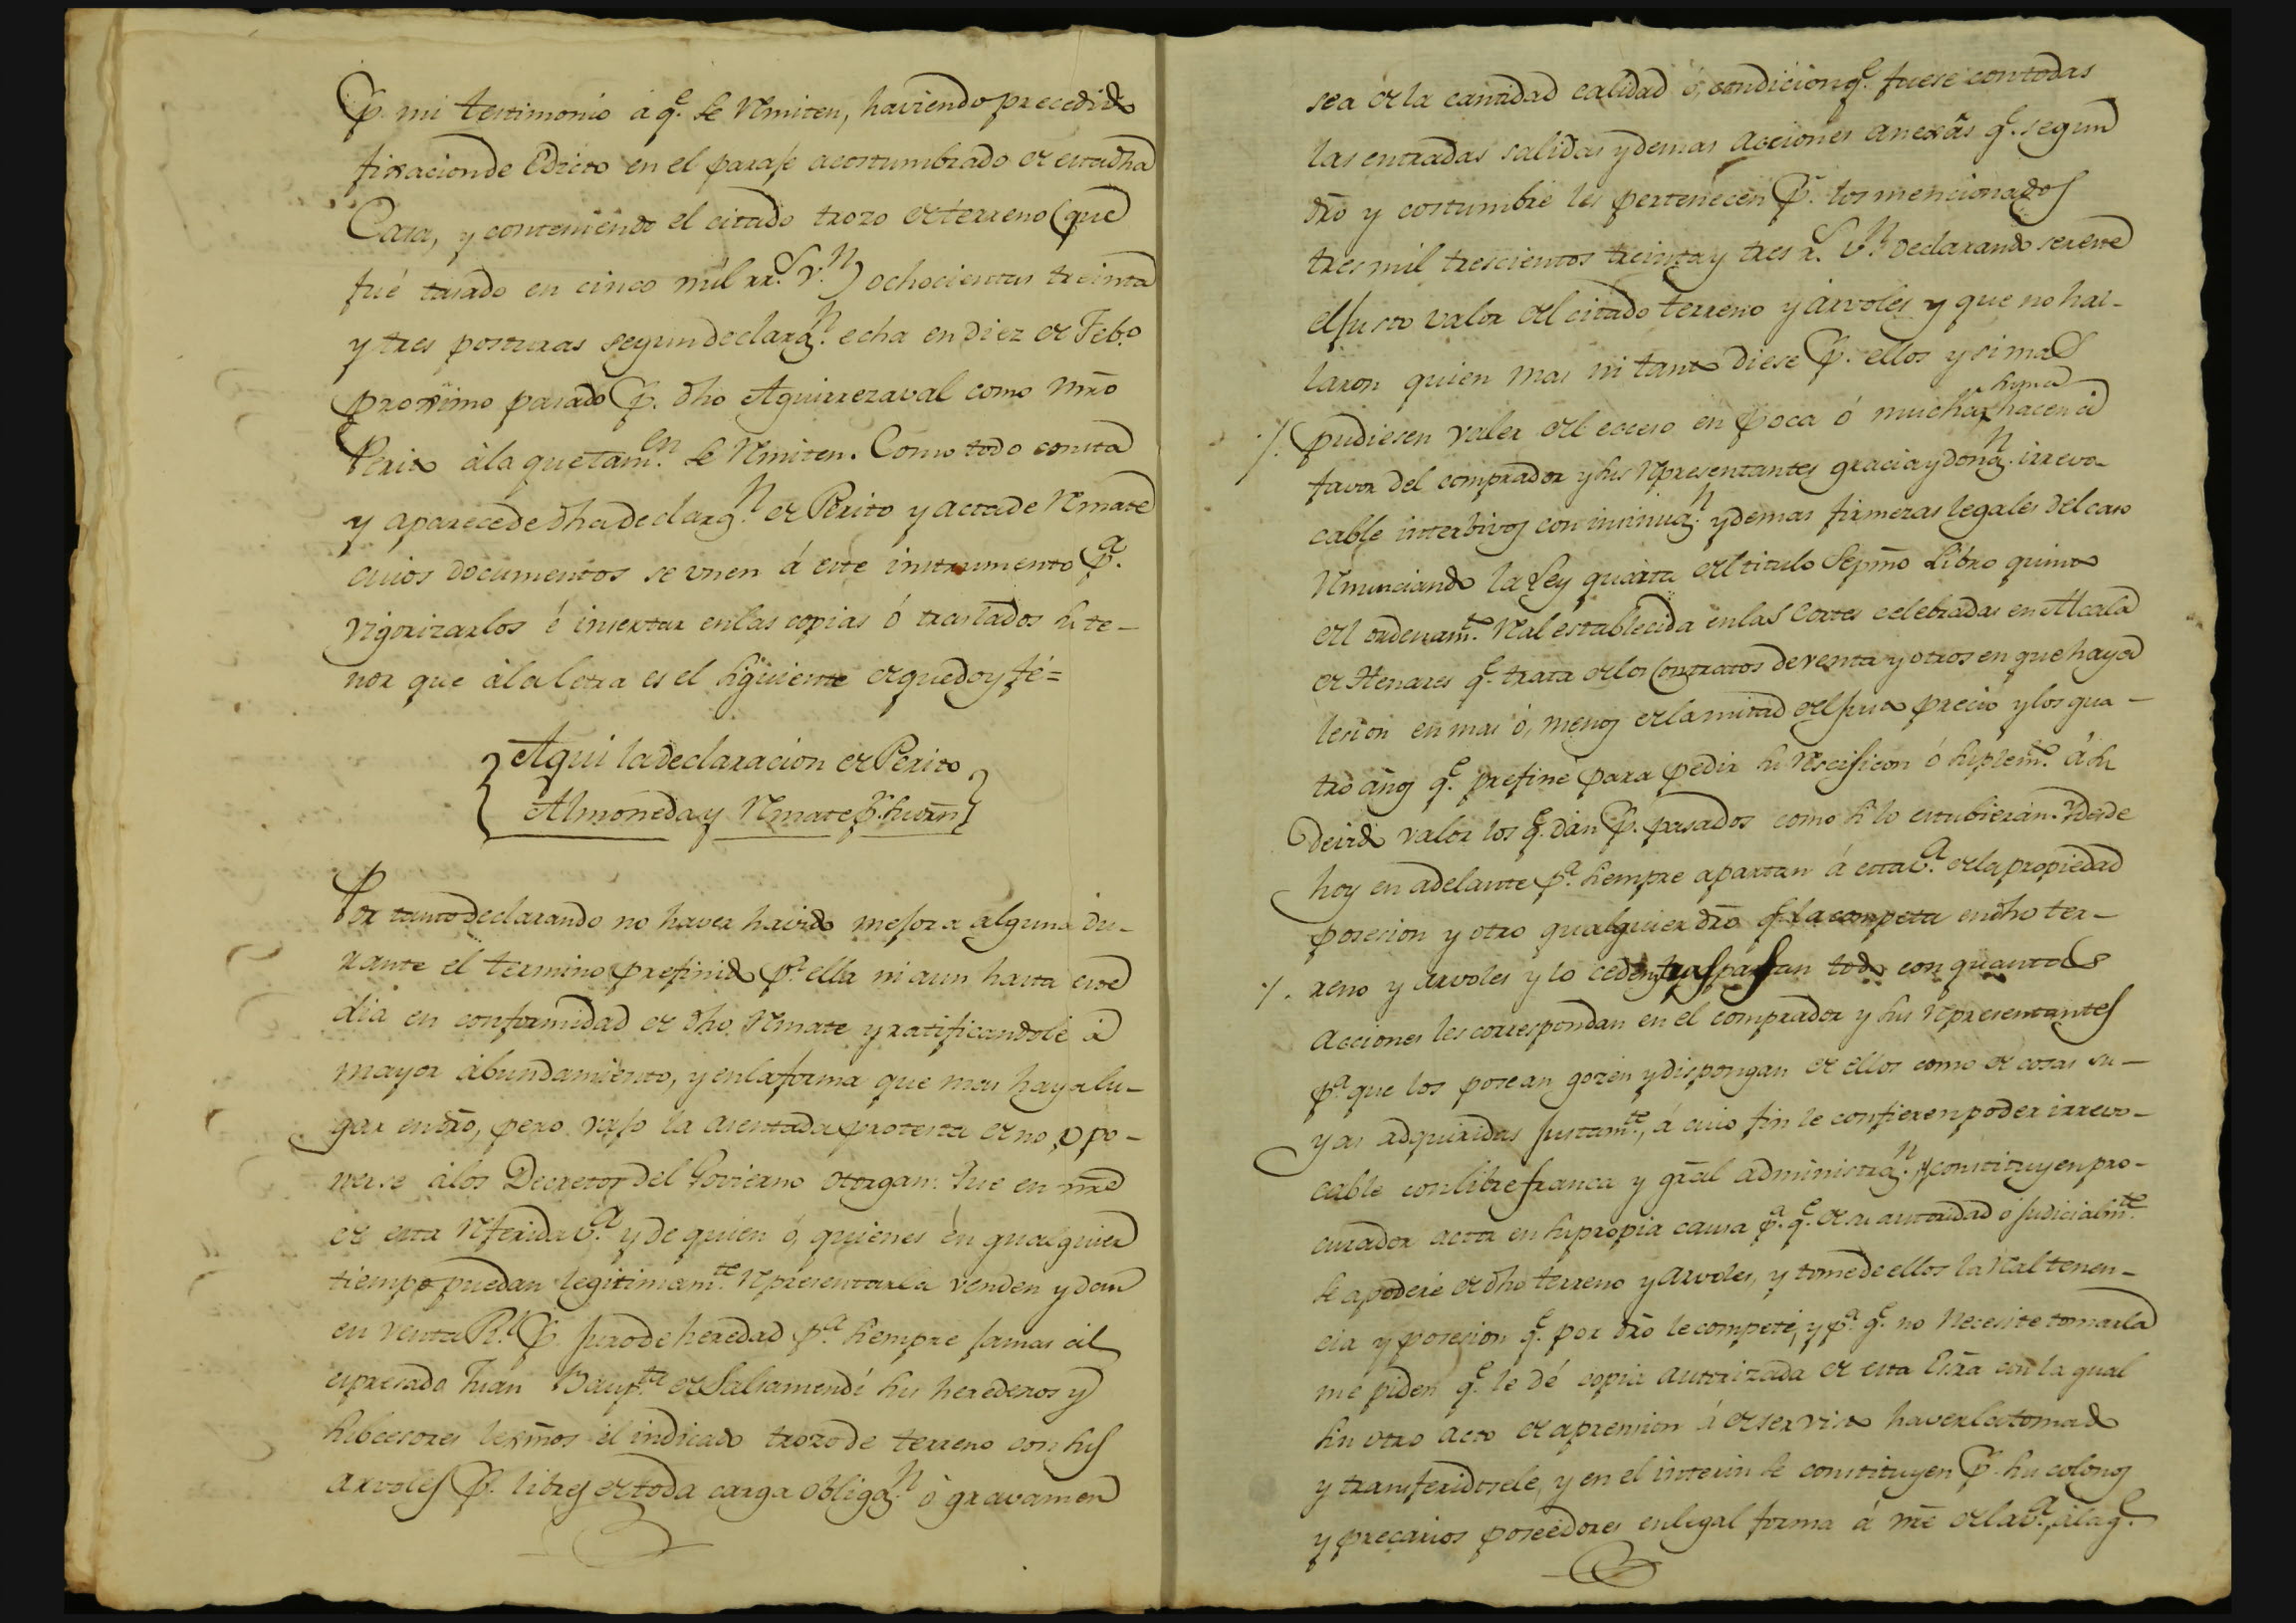 Pr. mi testimonio á qe. se Rmiten, haviendo precedido
fixacion de Edicto en el paraje acostumbrado de esta dha
Casa, y conteniendo el citado trozo de terreno (que
fué tasado en cinco mil rrs. vn.) ochocientas treinta
y tres posturas segun declarazn. echa en diez de Febo.
proximo pasado pr. dho Aguirrezaval como Mro
Perito á la que tamen. se Rmiten. Como todo consta
y aparece de dha declarazn. de Perito y acta de Rmate
cuios documentos se vnen á este instrumento pa.
vigorizarlos é insertar en las copias ó traslados su te-
nor que á la letra es el siguiente de que doy fé=
Aqui la declaracion de Perito
Almoneda y Rmate pr. su orn
Por tanto declarando no haver havido mejora alguna du-
rante el termino prefinido pa. ella ni aun hasta este
dia en conformidad de dho Rmate y ratificandole á
mayor abundamiento, y en la forma que mas haya lu-
gar en dro, pero vajo la asentada protesta de no opo-
nerse á los Decretos del Govierno otorgan: Que en nre
de esta Rferida va. y de quien ó, quienes én qualquier
tiempo puedan legitimamte. Rpresentarla venden y dan
en venta Rl. pr. juro de heredad pa. siempre jamas al
expresado Juan Baupta. de Salsamendi sus herederos y
subcesores lexmos el indicado trozo de terreno con sus
arvoles pr. libres de toda carga obligazn. ó gravamen
sea de la cantidad calidad ó, condicion qe. fuese con todas
las entradas salidas y demas acciones anexâs qe. segun
dro y costumbre les pertenecen pr. los mencionados
tres mil trescientos treinta y tres rs. vn. declarando ser este
el justo valor del citado terreno y arvoles y que no hal-
laron quien mas ni tanto diese pr. ellos y si mas
pudiesen valer del exceso en poca ó mucha suma hacen á
favor del comprador y sus Rpresentantes gracia y donazn. irrevo-
cable intervivos con insinuazn. y demas firmezas legales del caso
Rnunciando la Ley quarta del titulo Sepmo Libro quinto
del ordenamto. Rial establecida en las Cortes celebradas en Alcala
de Henares qe. trata de los Contratos de venta y otros en que haya
lesion en mas ó, menos de la mitad del justo precio y los qua-
tro años qe. prefine para pedir su Rscision ó suplemto. á su
devido valor los qe. dan pr. pasados como si lo estubieran. Y desde
hoy en adelante pa. siempre apartan á esta va. de la propiedad
posesion y otro qualquier dro qe. la competa en dho ter-
reno y arvoles y lo ceden, traspasan todo con quantas
acciones les correspondan en el comprador y sus Rpresentantes
pa. que los posean gozen y dispongan de ellos como de cosas su-
yas adquiridas justamte., á cuio fin le confieren poder irrevo-
cable con libre franca y gral administrazn. y constituyen pro-
curador actor en su propia causa pa. qe. de su autoridad o judicialmte.
se apodere de dho terreno y arvoles, y tome de ellos la Rial tenen-
cia y posesion qe. por dro le compete, y pa. qe. no Necesite tomarla
me piden qe. le dé copia autorizada de esta Esra con la qual
sin otro acto de aprension á de ser visto haverla tomado
y transferidosele, y en el interin se constituyen pr. sus colonos
y precarios poseedores en legal forma á nre de la va. á la qe.